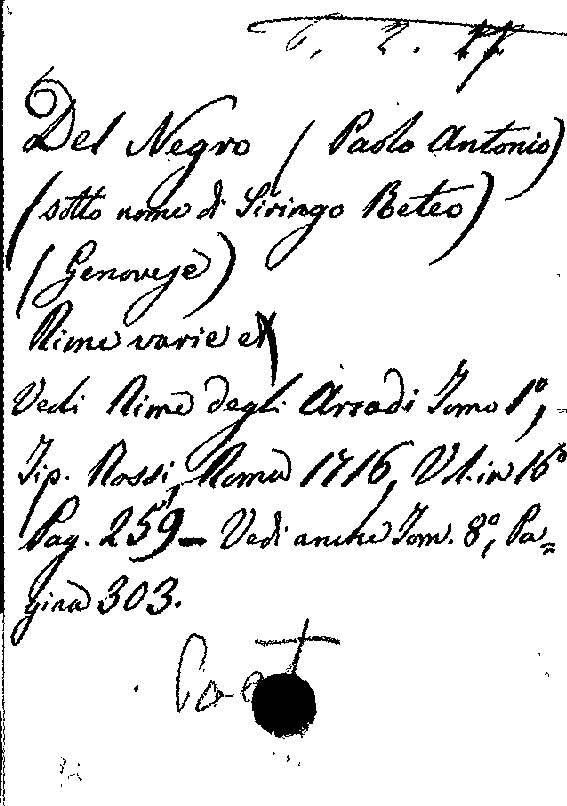 6. 2. 27
Del Negro (Paolo Antonio)
(sotto nome di Siringo Reteo)
(Genovese)
Rime varie
Vedi Rime degli Arcadi Tomo 1º,
Tip. Rossi, Roma 1716, V1. in 16º
Pag. 259 – Vedi anche Tom. 8º, Pa=
gina 303.